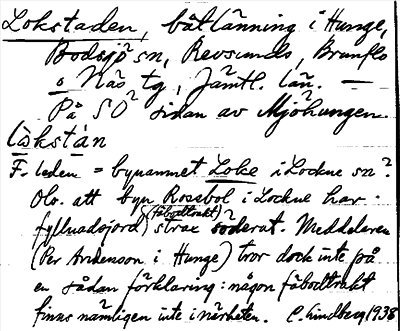 Lokstaden, båtlänning i Hunge,
Bodsjö sn, Revsunds, Brunflo
o Näs tg, Jämtl. län. —
På SO sidan av Mjöhungen.
lòkstán
F. leden = bynamnet Loke i Lockne sn?
Obs. att byn Rosebol i Lockne har
(fäbodtrakt)
fyllnadsjord strax söderut. Meddelaren
(Per Andersson i Hunge) tror dock inte på
en sådan förklaring: någon fäbodtrakt
finns nämligen inte i närheten. C. Lindberg 1938